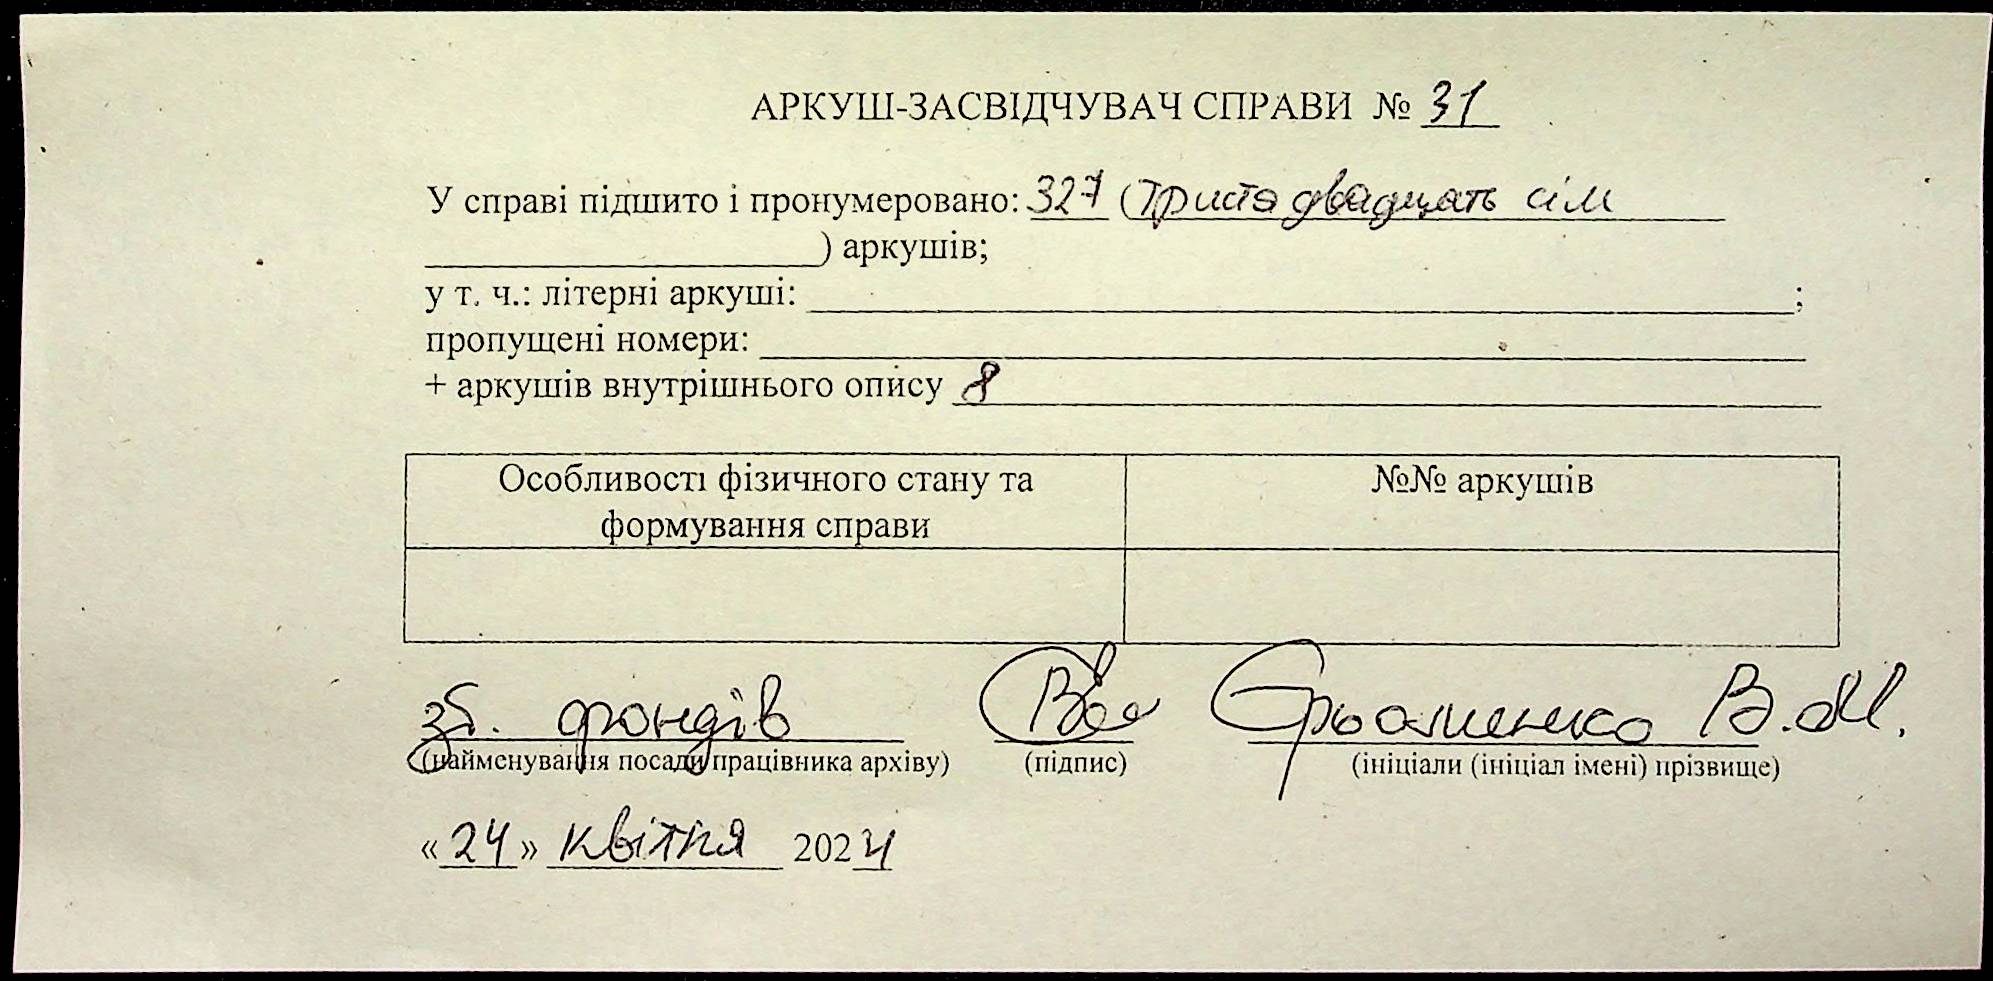 АРКУШ-ЗАСВІДЧУВАЧ СПРАВИ № 31
У справі підшито і пронумеровано: 327 (триста двадцять сім
) аркушів;
у т. ч.: літерні аркуші: ;
пропущені номери:
+ аркушів внутрішнього опису 8
Особливості фізичного стану та формування справи
№№ аркушів
зб. фондів
В.М.
(найменування посади працівника архіву) (підпис) (ініціали (ініціал імені) прізвище)
«24» квітня 2024